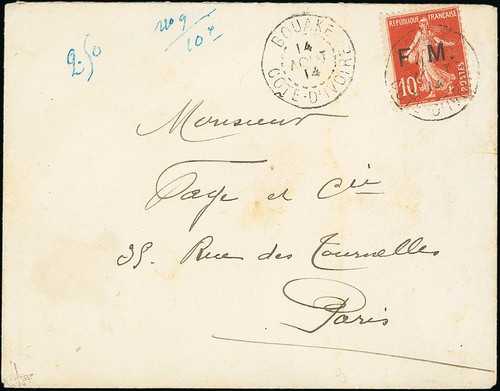 2.50
No 9
10 x
BOUAKE
14
AOUT
14
COTE-D'IVOIRE
REPUBLIQUE FRANÇAISE
F. M.
10
POSTES
14
Monsieur
Faye et Cie
35. Rue des Tournelles
Paris